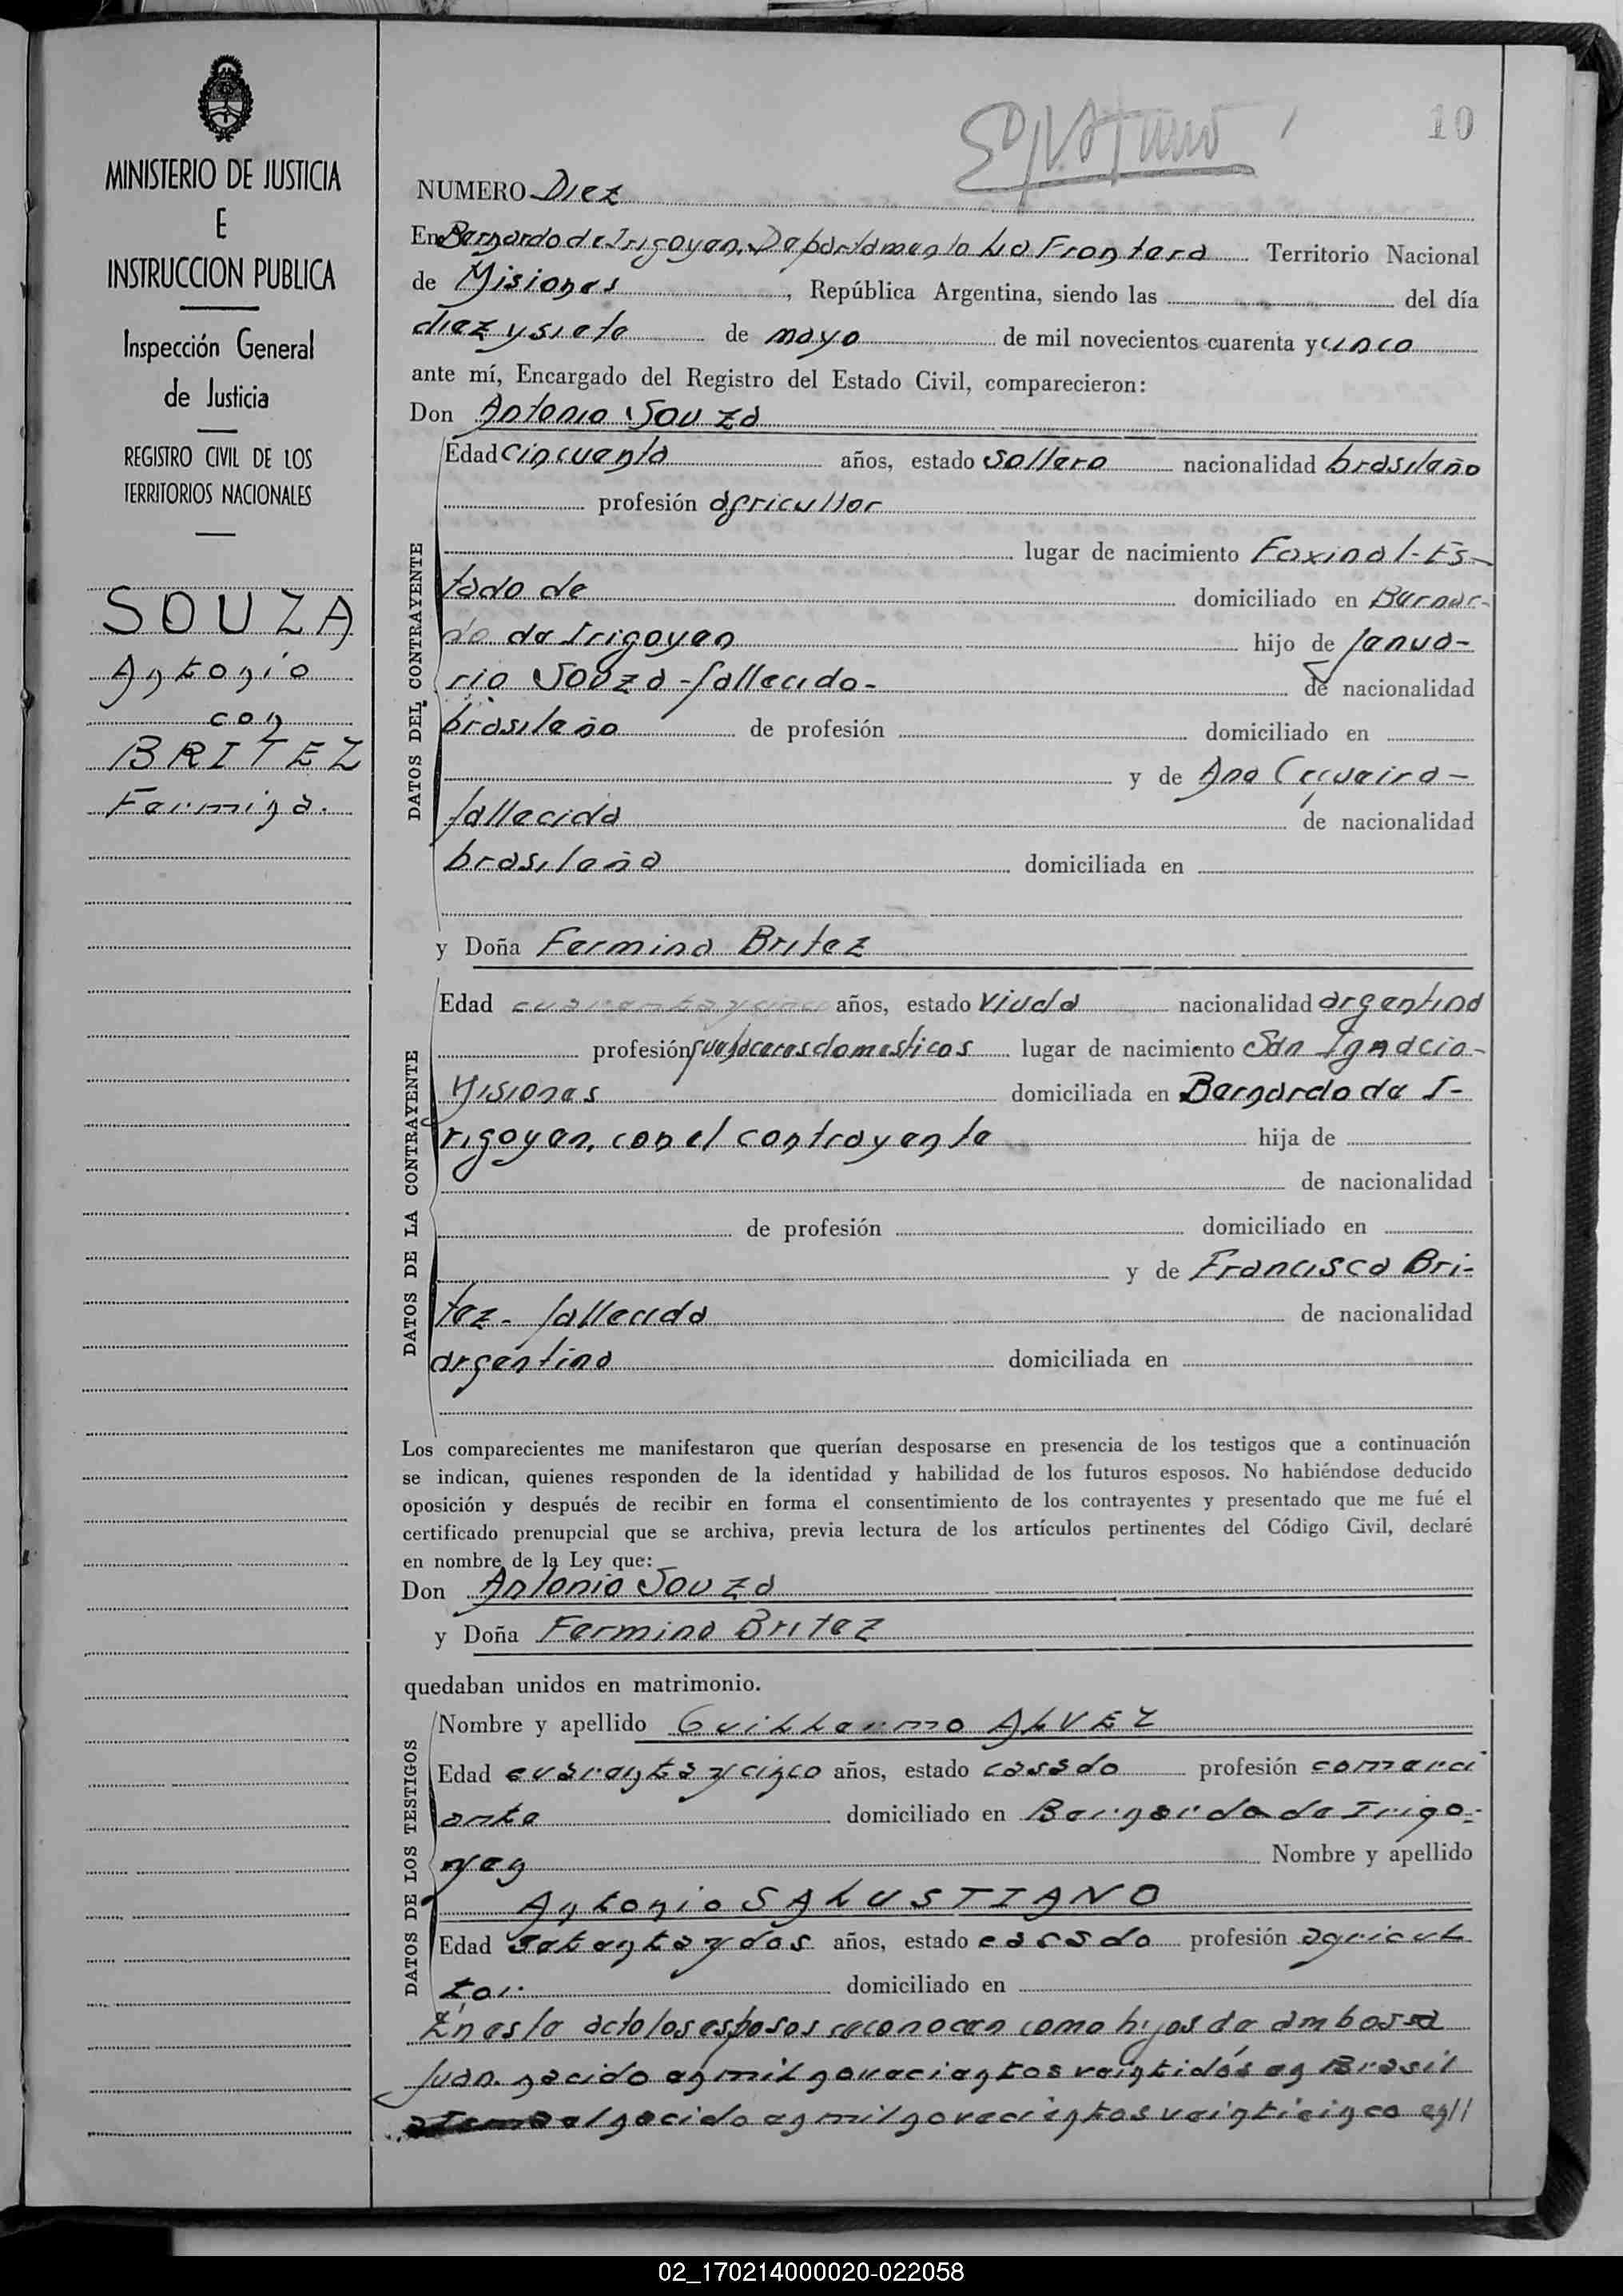 MINISTERIO DE JUSTICIA
E
INSTRUCCION PUBLICA
Inspección General
de Justicia
REGISTRO CIVIL DE LOS
TERRITORIOS NACIONALES
SOUZA
Antonio
con
BRITEZ
Fermina.
10
NUMERO Diez
En Bernardo de Irigoyen, Departamento La Frontera Territorio Nacional
de Misiones, República Argentina, siendo las del día
diez y siete de mayo de mil novecientos cuarenta y cinco
ante mí, Encargado del Registro del Estado Civil, comparecieron:
Don Antonio Souza
DATOS DEL CONTRAYENTE
Edad cincuenta años, estado soltero nacionalidad brasileño
profesión agricultor
lugar de nacimiento Faxinal-Es-
tado de domiciliado en Bernar-
do de Irigoyen hijo de Janua-
rio Souza - fallecido - de nacionalidad
brasileño de profesión domiciliado en
y de Ana -
fallecida de nacionalidad
brasileña domiciliada en
y Doña Fermina Britez
DATOS DE LA CONTRAYENTE
Edad cuarenta y cinco años, estado viuda nacionalidad argentina
profesión quehaceres domesticos lugar de nacimiento San Ignacio-
Misiones domiciliada en Bernardo de I-
rigoyen, con el contrayente hija de
de nacionalidad
de profesión domiciliado en
y de Francisca Bri-
tez - fallecida de nacionalidad
argentina domiciliada en
Los comparecientes me manifestaron que querían desposarse en presencia de los testigos que a continuación
se indican, quienes responden de la identidad y habilidad de los futuros esposos. No habiéndose deducido
oposición y después de recibir en forma el consentimiento de los contrayentes y presentado que me fué el
certificado prenupcial que se archiva, previa lectura de los artículos pertinentes del Código Civil, declaré
en nombre de la Ley que:
Don Antonio Souza
y Doña Fermina Britez
quedaban unidos en matrimonio.
DATOS DE LOS TESTIGOS
Nombre y apellido Guillermo ALVEZ
Edad cuarenta y cinco años, estado casado profesión comerci
ante domiciliado en Bernardo de Irigo-
yen Nombre y apellido
Antonio SALUSTIANO
Edad setenta y dos años, estado casado profesión agricul
tor domiciliado en
En este acto los esposos reconocen como hijos de ambos a
Juan nacido en mil novecientos veintidós en Brasil
nacido en mil novecientos veinticinco en//
02_170214000020-022058